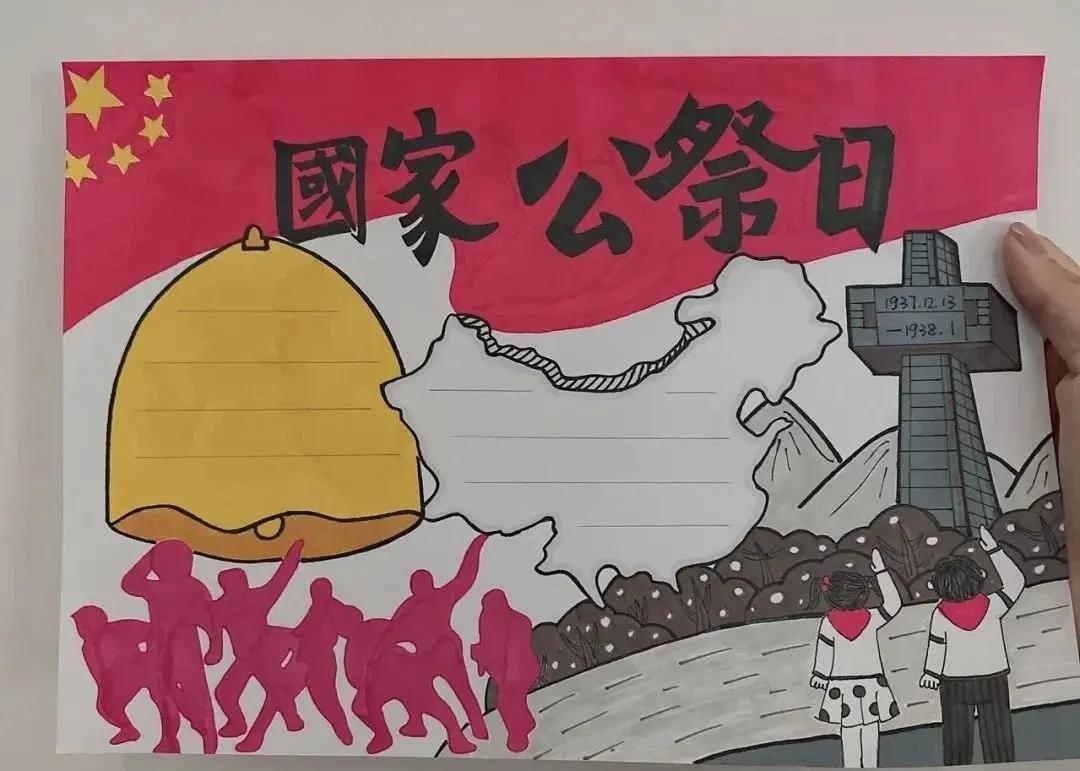 國家公祭日
1937.12.13
—1938.1